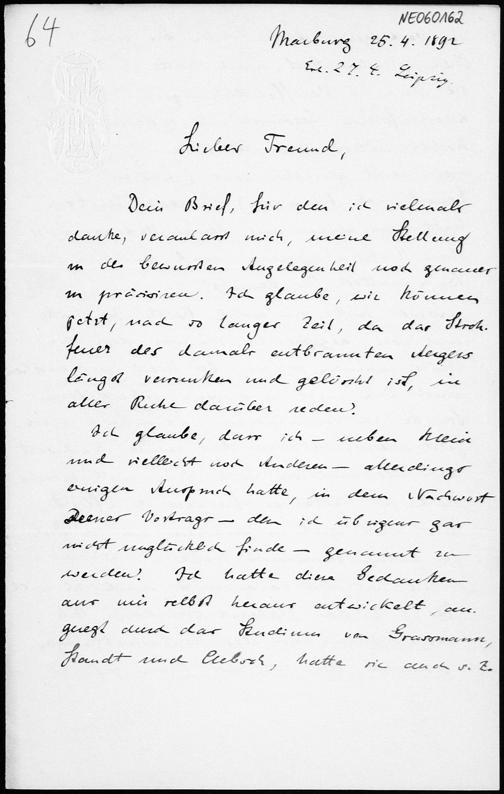 64
NE060162
Marburg 25. 4. 1892
Erl. 27. 4. Leipzig.
Lieber Freund,
Dein Brief, für den ich vielmals
danke, veranlasst mich, meine Stellung
in der bewussten Angelegenheit noch genauer
zu präcisiren. Ich glaube, wir können
jetzt, nach so langer Zeit, da das Stroh-
feuer des damals entbrannten Aergers
längst versunken und gelöscht ist, in
aller Ruhe darüber reden.
Ich glaube, dass ich – neben Klein
und vielleicht noch Anderen – allerdings
einigen Anspruch hatte, in dem Nachwort
Deines Vortrags – den ich übrigens gar
nicht unglücklich finde – genannt zu
werden. Ich hatte diese Gedanken
aus mir selbst heraus entwickelt, an-
geregt durch das Studium von Grassmann,
Staudt und Clebsch, hatte sie auch s. Z.